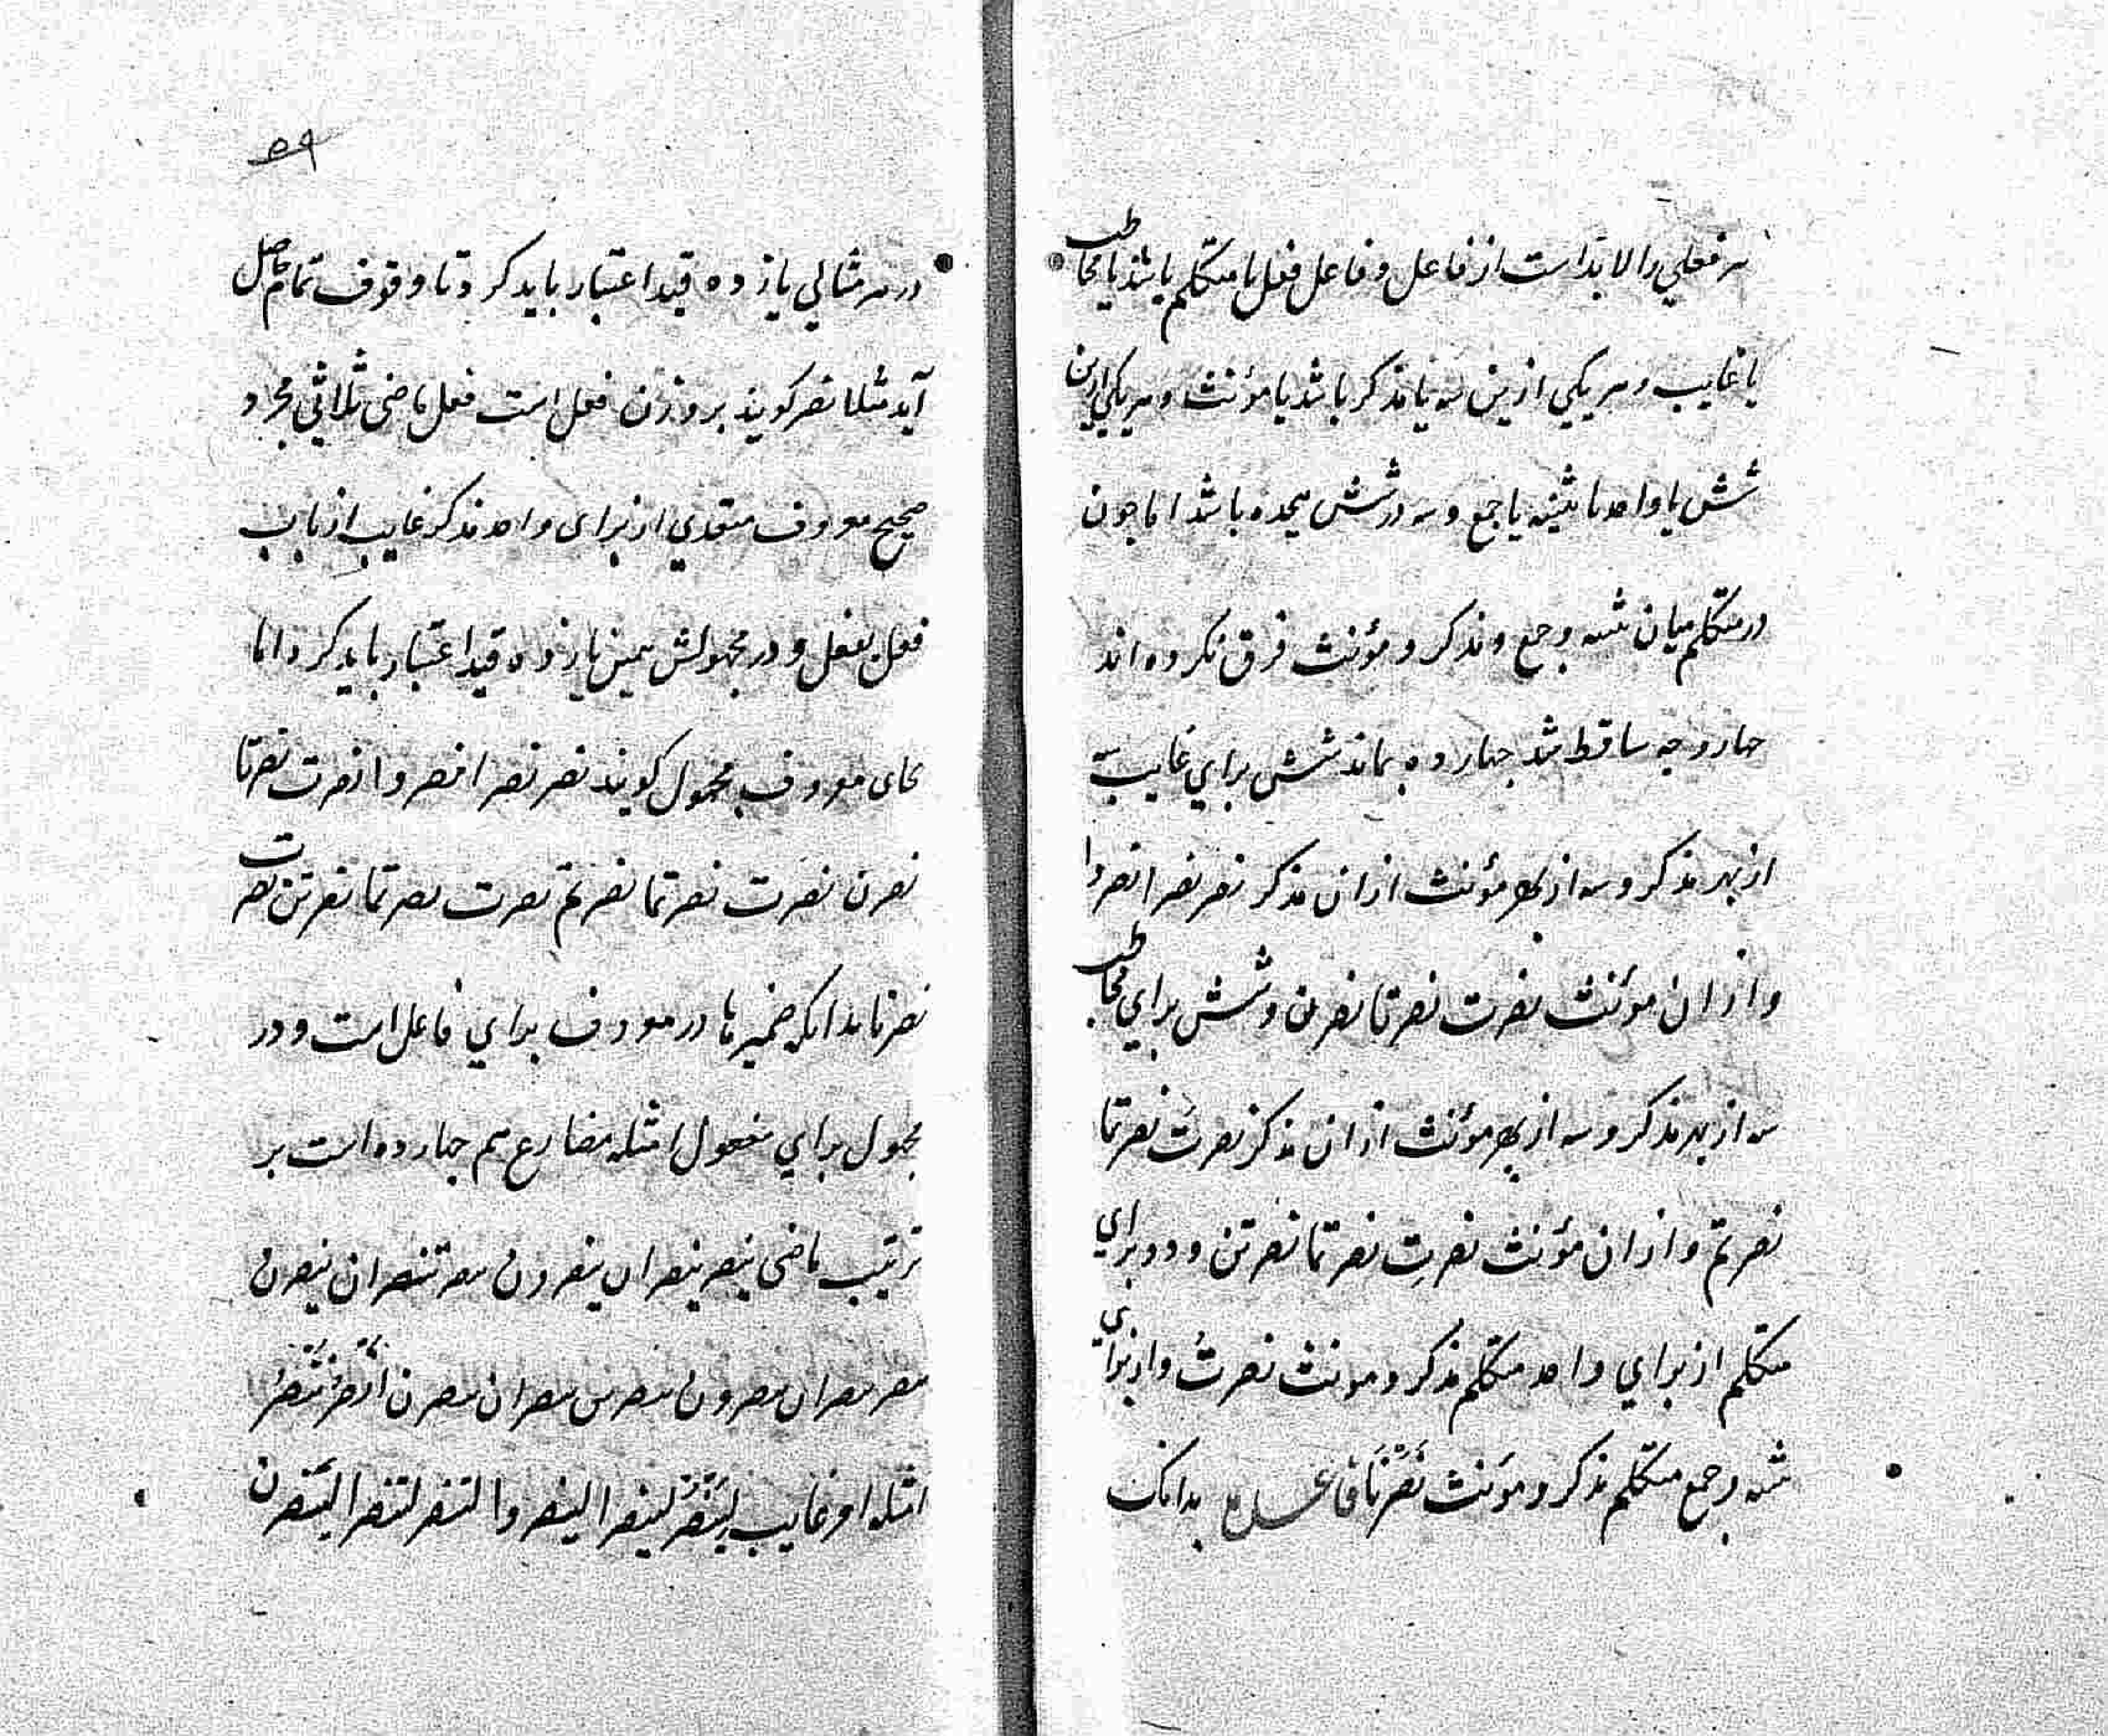 هر فعلي را لابد است از فاعل و فاعل فعل يا متكلم باشد يا مخاطب
يا غايب و هر يكي ازين سه يا مذكر باشد يا مؤنث و هر يكي ازين
شش يا واحد يا تثنيه يا جمع و سه در شش هيجده باشد اما جون
در متكلم ميان تثنيه و جمع و مذكر و مؤنث فرق نكرده اند
جهار وجه ساقط شد جهارده بماند شش براي غايب سه
از بهر مذكر و سه از بهر مؤنث ازان مذكر نصر نصرا نصروا
و ازان مؤنث نصرت نصرتا نصرن و شش براي مخاطب
سه از بهر مذكر و سه از بهر مؤنث ازان مذكر نصرت نصرتما
نصرتم و ازان مؤنث نصرتِ نصرتما نصرتن و دو براي
متكلم از براي واحد متكلم مذكر و مونث نصرتُ و از براي
تثنيه و جمع متكلم مذكر و مؤنث نَصَرْنَا فاعل بدانك
۵۹
در هر مثالي يازده قيد اعتبار بايد كرد تا وقوف تمام حاصل
آيد مثلا نصر كويند بر وزن فعل است فعل ماضى ثلاثي مجرد
صحيح معروف متعدي از براى واحد مذكر غايب از باب
فعل يفعل و در مجهولش همين يازده قيد اعتبار بايد كرد اما
بجاى معروف مجهول كويند نصر نصرا نصروا نصرت نصرتا
نصرن نصرت نصرتما نصرتم نصرت نصرتما نصرتن نصرت
نصرنا بدانكه ضمير ها در معروف براي فاعل است و در
مجهول براي مفعول امثله مضارع هم جهارده است بر
ترتيب ماضى ينصر ينصران ينصرون تنصر تنصران ينصرن
تنصر تنصران تنصرون تنصرين تنصران تنصرن اَنْصُرُ نَنْصُرُ
امثله امر غايب لِيَنْصُرْ لينصرا لينصروا لتنصر لتنصرا لينصرن